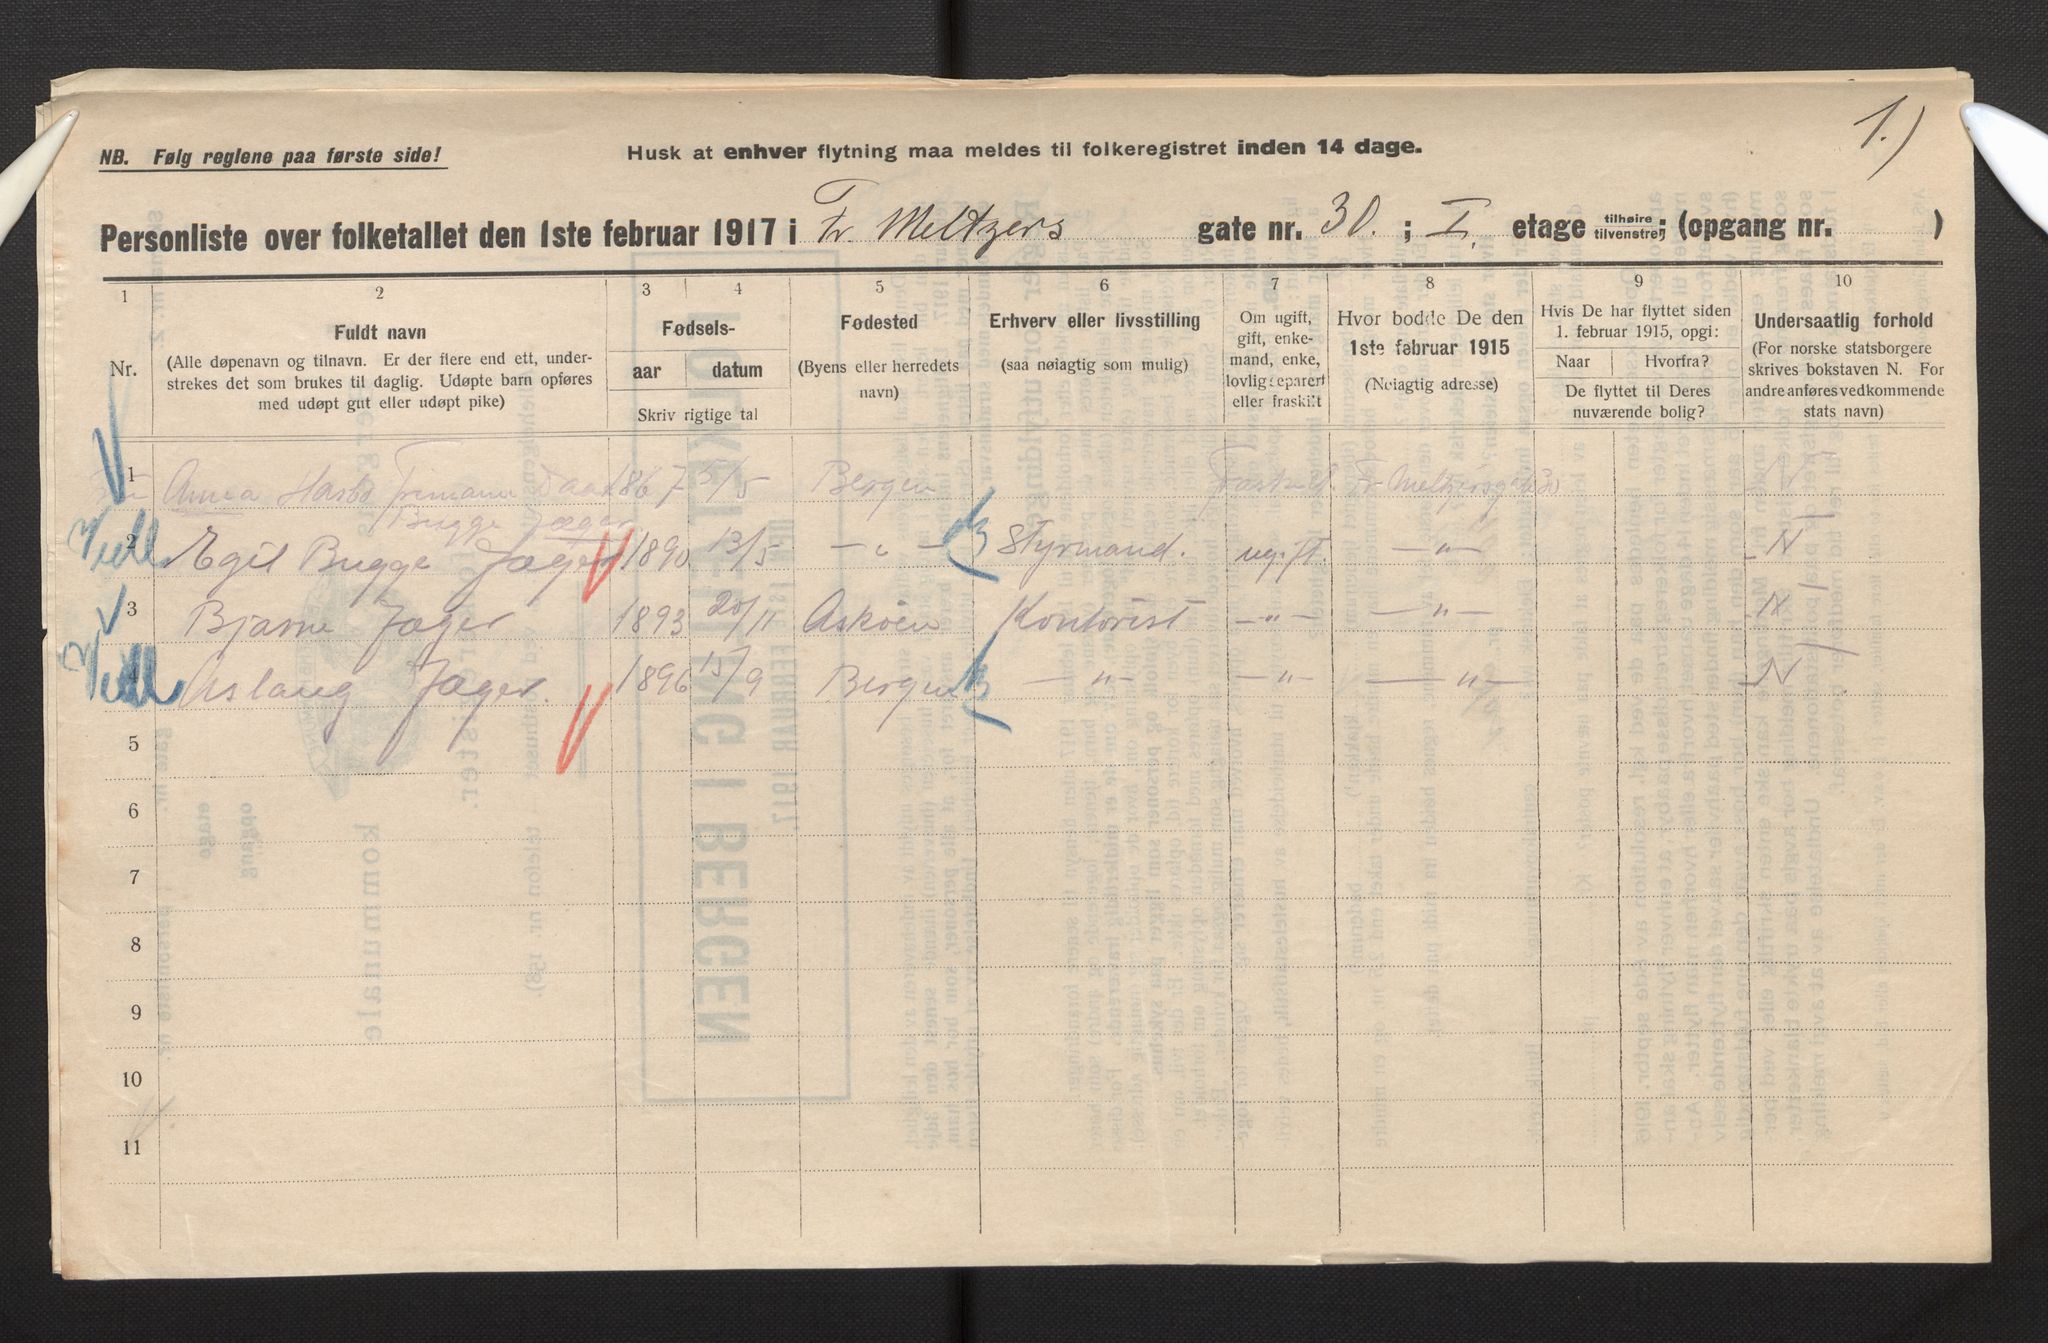 1.)
NB. Følg reglene paa første side!
Husk at enhver flytning maa meldes til folkeregistret inden 14 dage.
Personliste over folketallet den 1ste februar 1917 i Fr. Meltzers gate nr. 30. ; I. etage tilhøire tilvenstre; (opgang nr. )
1 2 3 4 5 6 7 8 9 10
Nr.
Fuldt navn
(Alle døpenavn og tilnavn. Er der flere end ett, under-
strekes det som brukes til daglig. Udøpte barn opføres
med udøpt gut eller udøpt pike)
Fødsels-
aar datum
Skriv rigtige tal
Fødested
(Byens eller herredets
navn)
Erhverv eller livsstilling
(saa nøiagtig som mulig)
Om ugift,
gift, enke-
mand, enke,
lovlig separert
eller fraskilt
Hvor bodde De den
1ste februar 1915
(Nøiagtig adresse)
Hvis De har flyttet siden
1. februar 1915, opgi:
Naar Hvorfra?
De flyttet til Deres
nuværende bolig?
Undersaatlig forhold
(For norske statsborgere
skrives bokstaven N. For
andre anføres vedkommende
stats navn)
1 Anna 1867 5/5 Bergen Fraskilt Fr Meltzersgate 30 N
Bugge Jæger
2 Egil Bugge Jæger 1890 13/5 —"— Styrmand. ugift. —"— N
3 Bjarne Jæger 1893 20/11 Askøen Kontorist —"— —"— N
4 Aslaug Jæger. 1896 15/9 Bergen —"— —"— —"— N
5
6
7
8
9
10
11